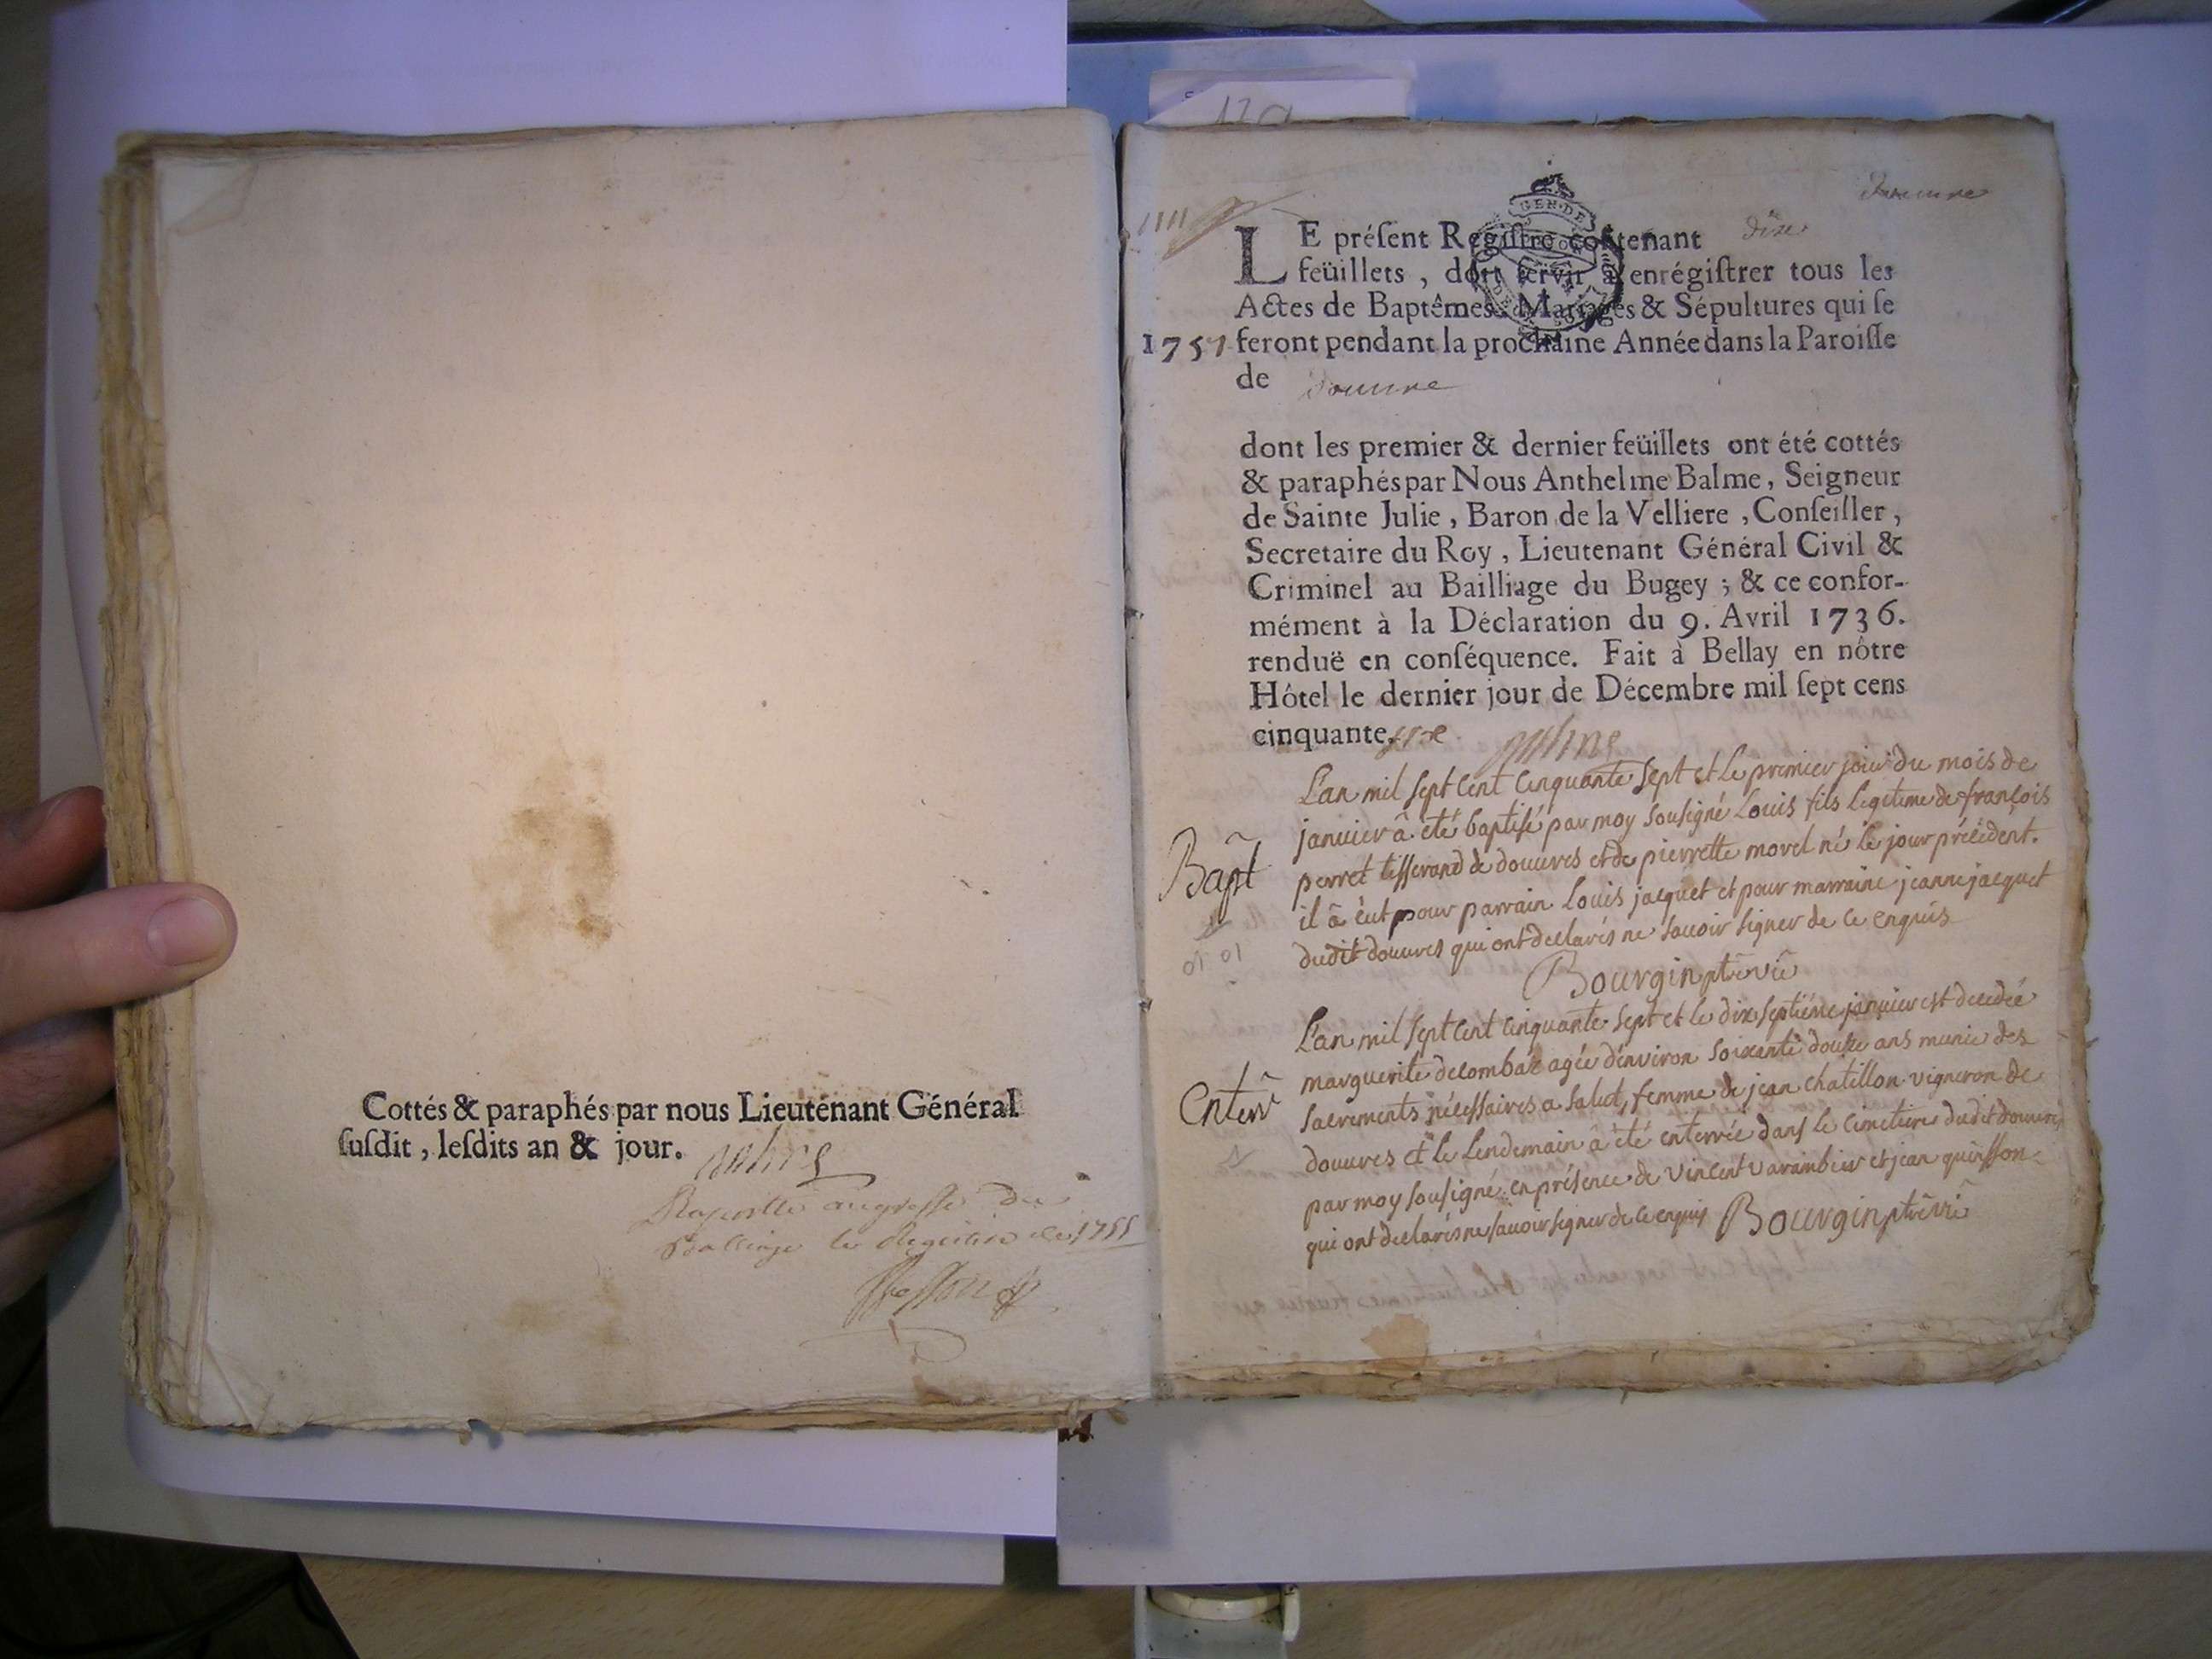 Cottés & paraphés par nous Lieutenant Général
ſuſdit, leſdits an & jour.
le Registre de 1755
GEN·DE
LE préſent Regiſtre contenant dixe
feüillets, doit ſervir à enrégiſtrer tous les
Actes de Baptêmes, Mariages & Sépultures qui ſe
1757 feront pendant la prochaine Année dans la Paroiſſe
de douvre
dont les premier & dernier feüillets ont été cottés
& paraphés par Nous Anthelme Balme, Seigneur
de Sainte Julie, Baron de la Velliere, Conſeiller,
Secretaire du Roy, Lieutenant Général Civil &
Criminel au Bailliage du Bugey; & ce confor-
mément à la Déclaration du 9. Avril 1736.
renduë en conſéquence. Fait à Bellay en nôtre
Hôtel le dernier jour de Décembre mil ſept cens
cinquante.
L'an mil sept cent cinquante sept et le premier jour du mois de
janvier â été baptisé par moy sousigné Louis fils legitime de françois
Bapt perret tisserand de douvres et de pierrette morel né le jour précédent.
il â eut pour parrain Louis jacquet et pour marraine jeanne jacquet
dudit douvres qui ont declarés ne savoir signer de ce enquis
Bourgin ptre vic
L'an mil sept cent cinquante sept et le dix septième janvier est decedée
marguerite decombaz agée d'environ soixante douze ans munie des
Enterr sacrements nécessaires a salut, femme de jean chatillon vigneron de
douvres et le lendemain â été enterrée dans le cimetiere dudit douvres
par moy sousigné en présence de vincent varambier et jean quinsson
qui ont declarés ne savoir signer de ce enquis Bourgin ptre vic